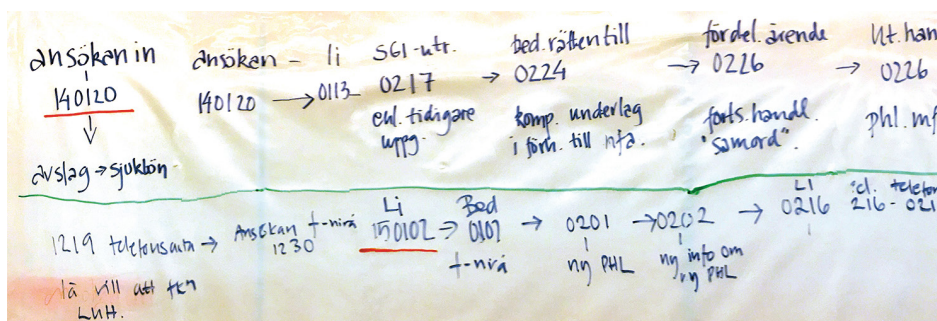 ansökan in
140120
avslag → sjuklön
ansökan - li
140120 → 0113
SGI-utr.
0217
enl. tidigare
uppg.
→ bed. rätten till
0224
komp. underlag
i förh. till nfa.
→ fördel. ärende
0226
forts. handl.
"samord".
→ Ut. han
0226
phl. mf
1219 telefonsamt → Ansökan f-nivå
1230
Li
150102 → Bed
0107
f-nivå
→ 0201
ny PHL
→ 0202
ny info om
ny PHL
→ LI
0216
telefon
216 - 021
vill att